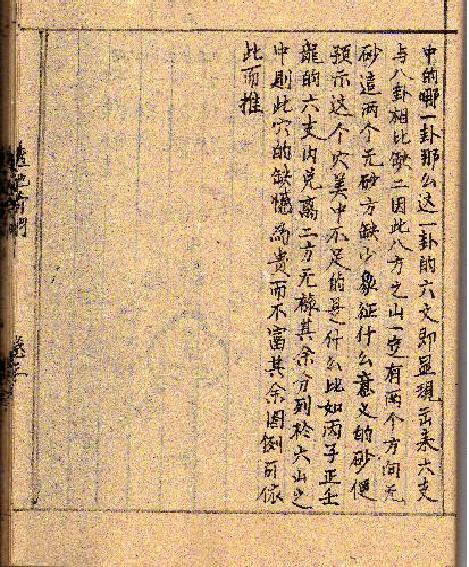 中的哪一卦那么这一卦的六爻即显现出来六支
与八卦相比缺二因此八方之山一定有两个方间无
砂這两个无砂方缺少象征什么意义的砂便
预示这个穴美中不足的是什么比如丙子正壬
龍的六支内兑离二方无禄其余分列於六山之
中則此穴的缺憾為贵而不富其余图例可依
此而推